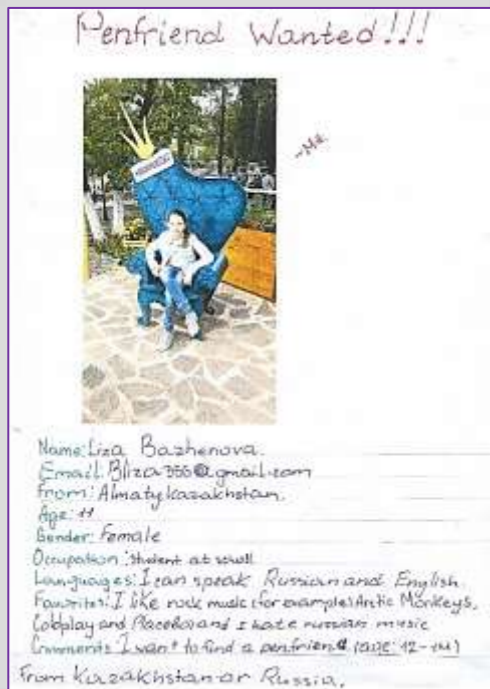 Penfriend Wanted!!!
-Me
Name: Liza Bazhenova.
Email:
From: Almaty kazakhstan.
Age: 11
Gender: Female
Occupation: student at scull
Languages: I can speak Russian and English
Favorites: I like rock music (for example) Arctic Monkeys,
Coldplay and Placebo and I hate russian music
Comments I want to find a penfriend (age: 12-14)
From Kazakhstan or Russia.